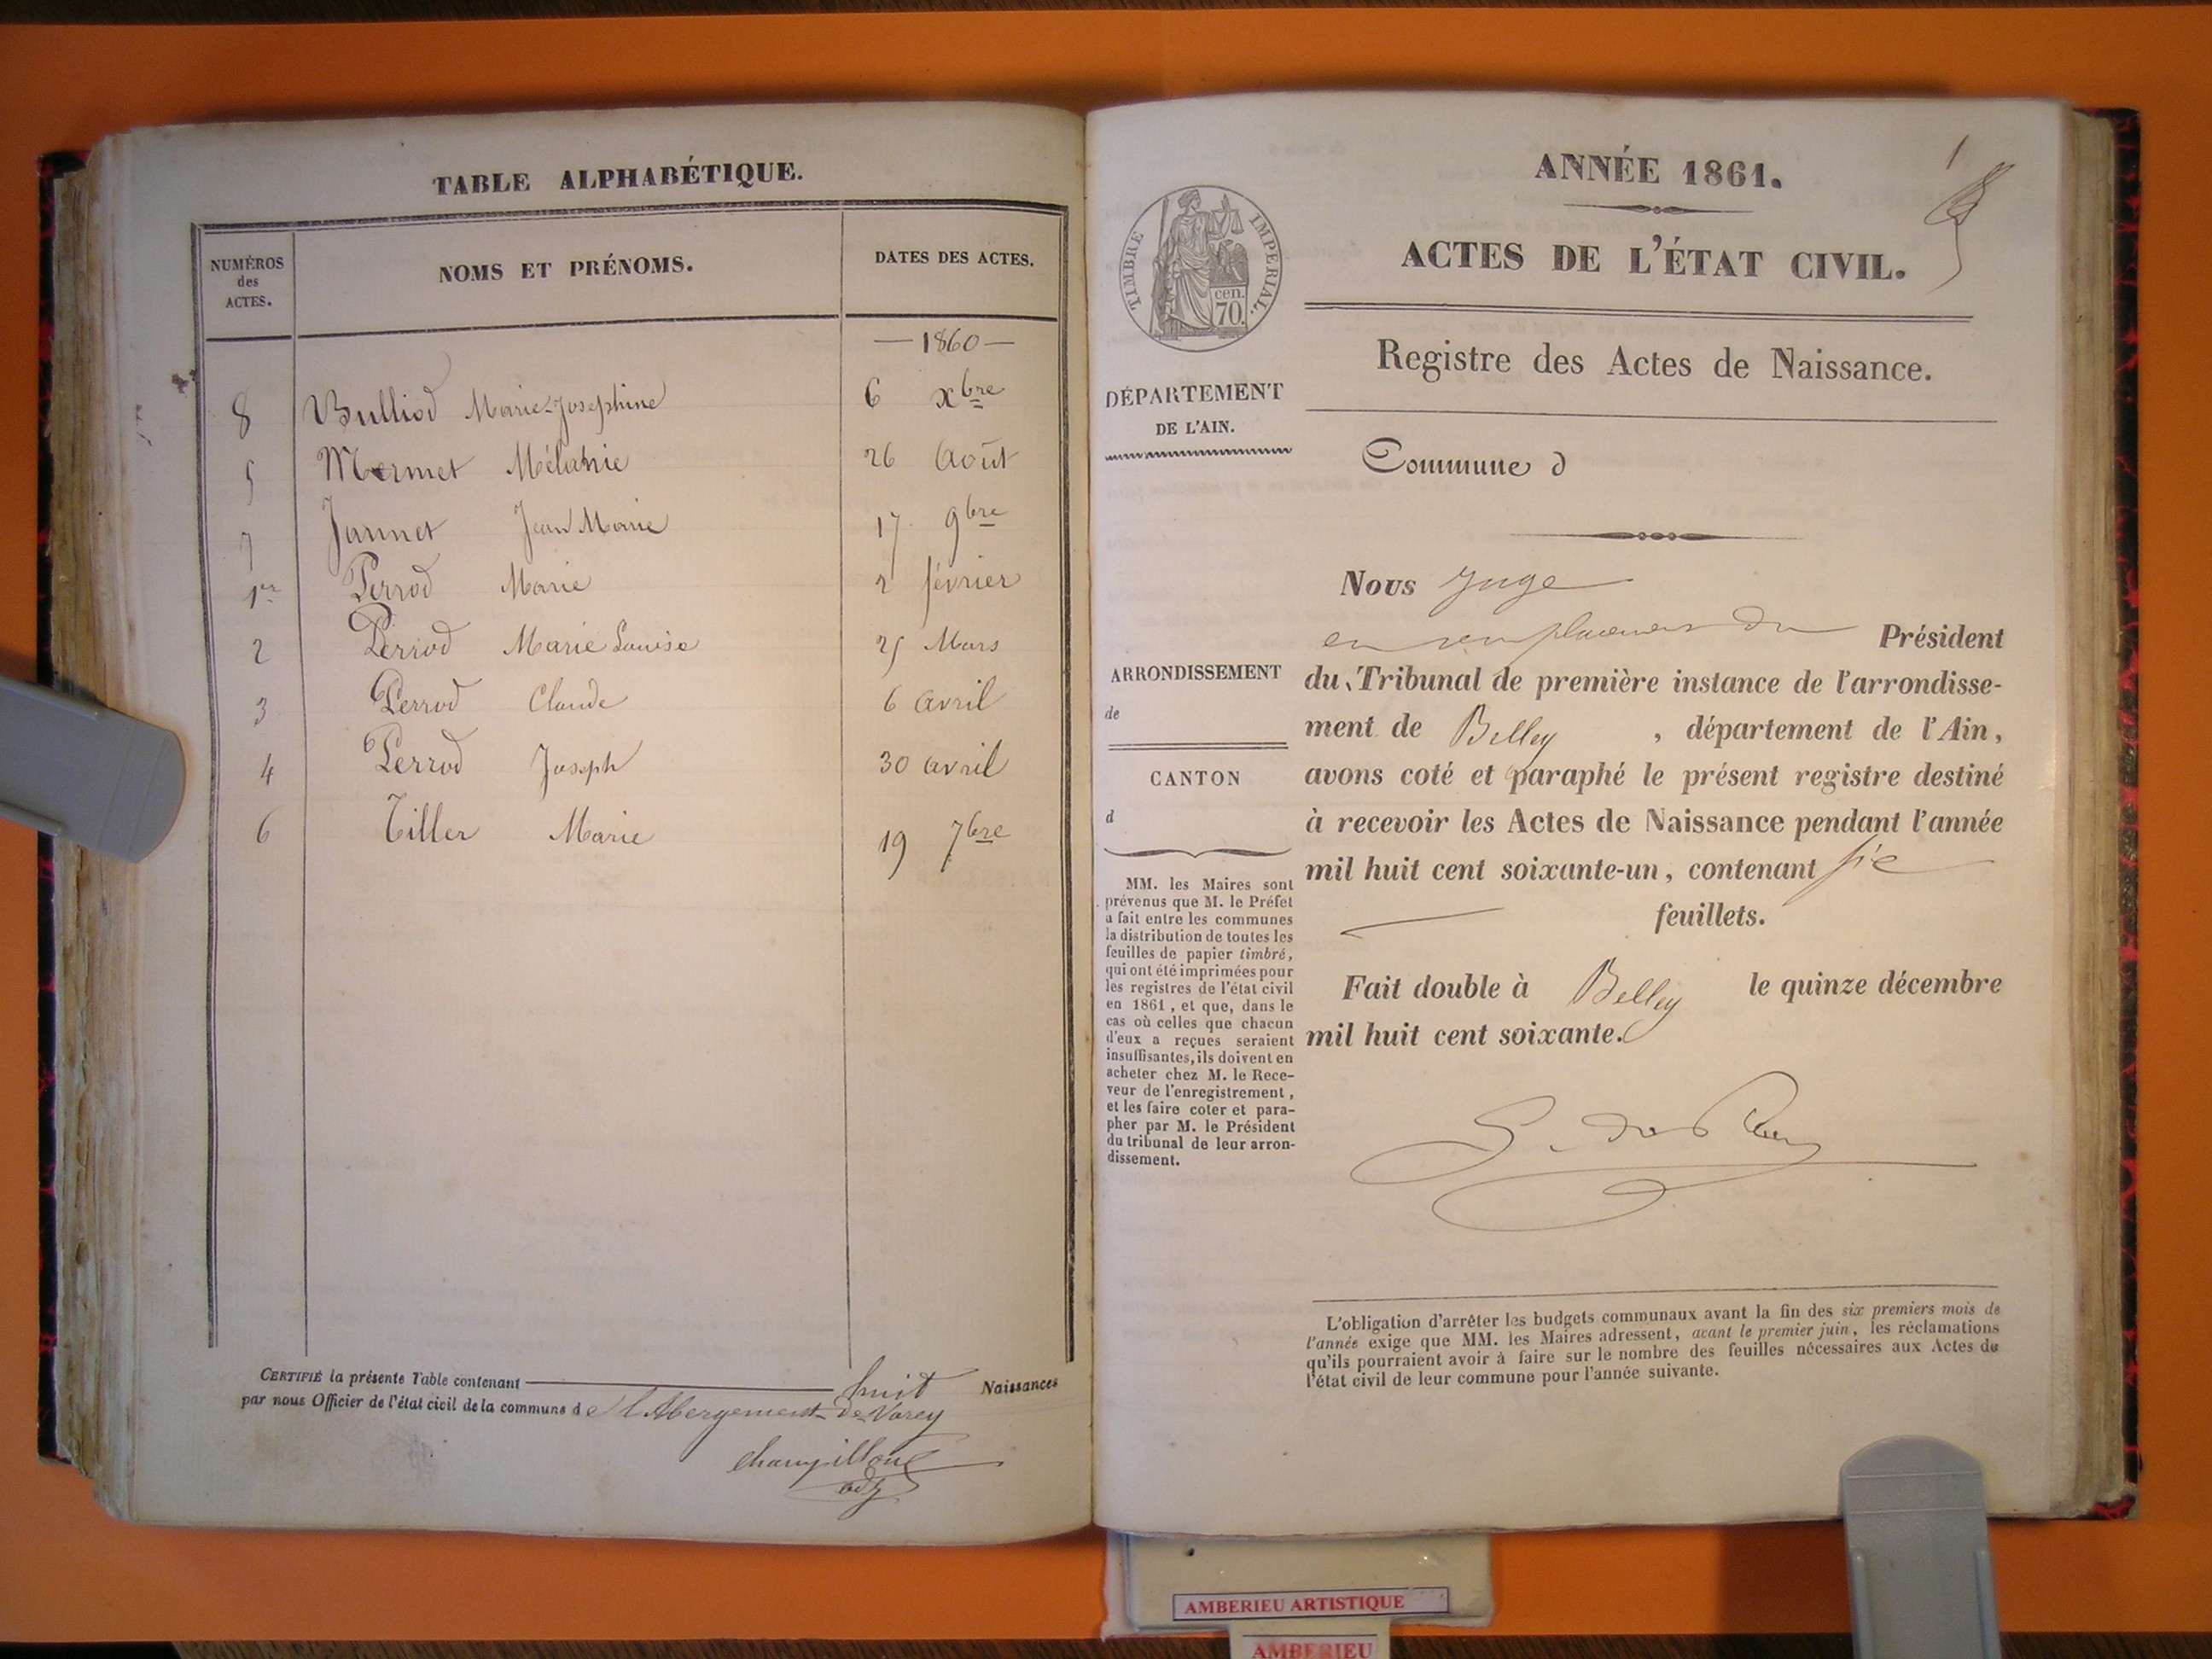 TABLE ALPHABÉTIQUE.
NUMÉROS
des
ACTES.
NOMS ET PRÉNOMS.
DATES DES ACTES.
— 1860 —
8 Bulliod Marie-Josephine 6 xbre
5 Mermet Mélanie 26 Août
7 Jannet Jean Marie 17 9bre
1er Perrod Marie 2 février
2 Perrod Marie Louise 25 Mars
3 Perrod Claude 6 avril
4 Perrod Joseph 30 avril
6 Tiller Marie 19 7bre
CERTIFIÉ la présente Table contenant huit Naissances
par nous Officier de l'état civil de la commune de l'Abergement-de-Varey
adj
ANNÉE 1861.
1
ACTES DE L'ÉTAT CIVIL.
TIMBRE IMPERIAL.
cen.
70.
Registre des Actes de Naissance.
DÉPARTEMENT
DE L'AIN.
Commune d
Nous Juge
en remplacement du Président
du Tribunal de première instance de l'arrondisse-
ment de Belley , département de l'Ain,
avons coté et paraphé le présent registre destiné
à recevoir les Actes de Naissance pendant l'année
mil huit cent soixante-un, contenant six
feuillets.
Fait double à Belley le quinze décembre
mil huit cent soixante.
ARRONDISSEMENT
de
CANTON
d
MM. les Maires sont
prévenus que M. le Préfet
a fait entre les communes
la distribution de toutes les
feuilles de papier timbré,
qui ont été imprimées pour
les registres de l'état civil
en 1861, et que, dans le
cas où celles que chacun
d'eux a reçues seraient
insuffisantes, ils doivent en
acheter chez M. le Rece-
veur de l'enregistrement,
et les faire coter et para-
pher par M. le Président
du tribunal de leur arron-
dissement.
L'obligation d'arrêter les budgets communaux avant la fin des six premiers mois de
l'année exige que MM. les Maires adressent, avant le premier juin, les réclamations
qu'ils pourraient avoir à faire sur le nombre des feuilles nécessaires aux Actes de
l'état civil de leur commune pour l'année suivante.
AMBERIEU ARTISTIQUE
AMBERIEU